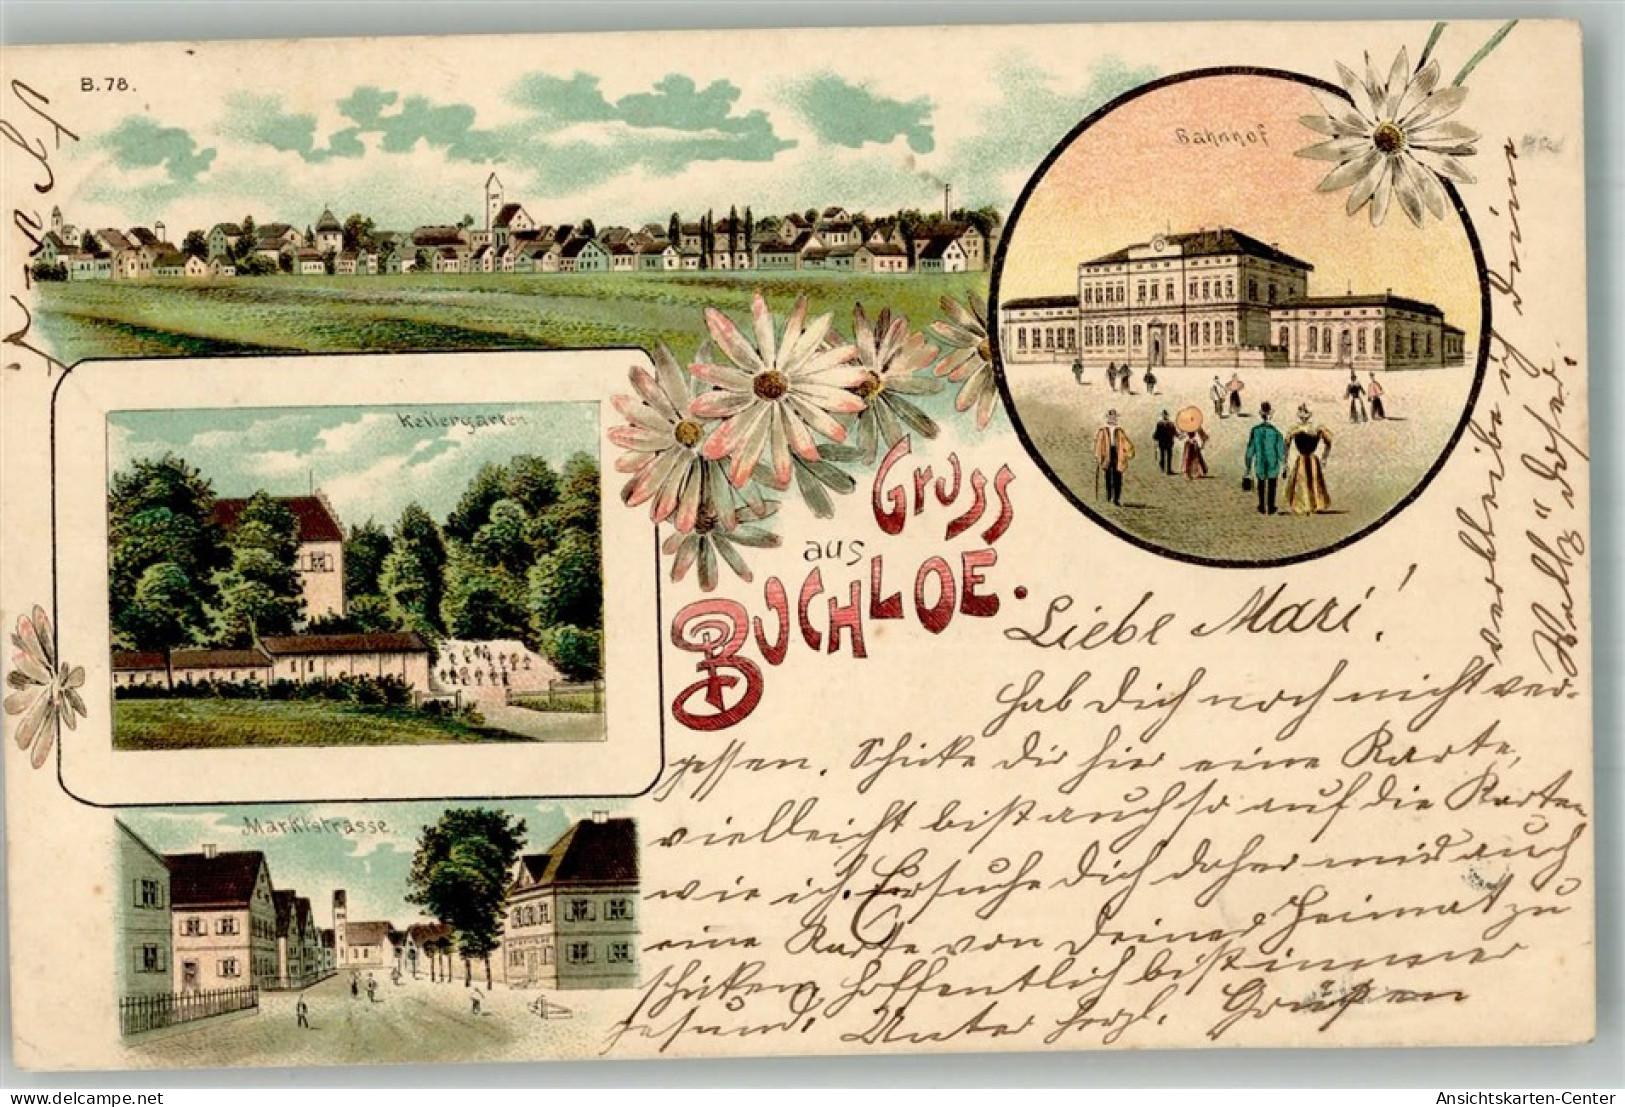 B. 78.
Bahnhof
Kellergarten
Gruss
aus
BUCHLOE.
Marktstrasse.
Liebe Mari!
Hab Dich noch nicht ver-
gessen. Schicke Dir hier eine Karte,
vielleicht bist auch so auf die Karten
wie ich. Ersuche Dich daher mir auch
eine Karte von Deiner Heimat zu
schicken, hoffentlich bist immer
gesund. Unter herzl. Grüßen
verbleibe ich Deine
www.Ansichtskarten-Center.de
Ansichtskarten-Center